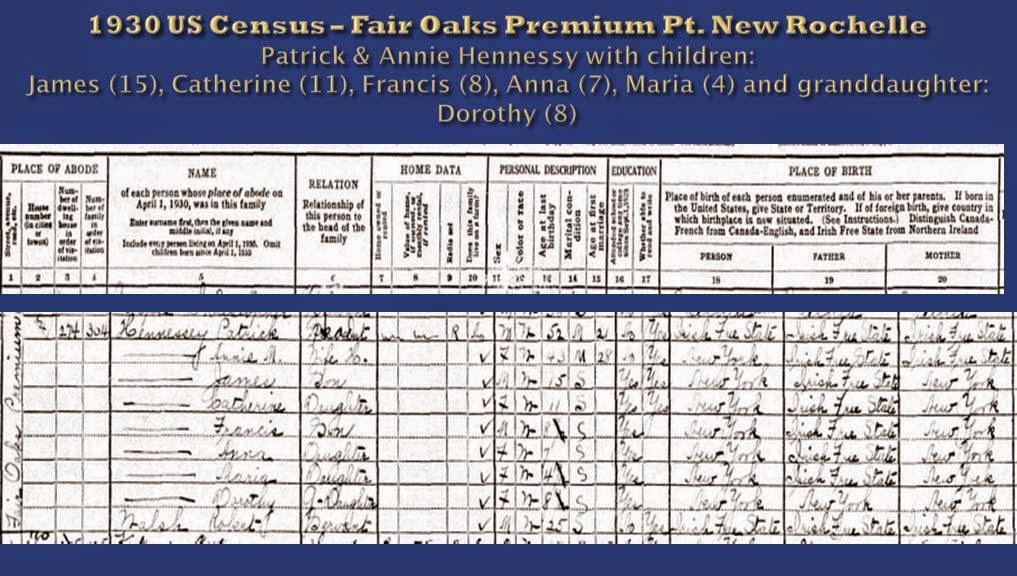 1930 US Census – Fair Oaks Premium Pt. New Rochelle
Patrick & Annie Hennessy with children:
James (15), Catherine (11), Francis (8), Anna (7), Maria (4) and granddaughter:
Dorothy (8)
PLACE OF ABODE NAME RELATION HOME DATA PERSONAL DESCRIPTION EDUCATION PLACE OF BIRTH
House number (in cities or towns)
Number of dwelling house in order of visitation
Number of family in order of visitation
of each person whose place of abode on
April 1, 1930, was in this family
Enter surname first, then the given name and
middle initial, if any
Include every person living on April 1, 1930. Omit
children born since April 1, 1930
Relationship of
this person to
the head of the
family
Home owned or rented
Radio set
Does this family live on a farm?
Sex
Color or race
Age at last birthday
Marital condition
Age at first marriage
Whether able to read and write
Place of birth of each person enumerated and of his or her parents. If born in
the United States, give State or Territory. If of foreign birth, give country in
which birthplace is now situated. (See Instructions.) Distinguish Canada-
French from Canada-English, and Irish Free State from Northern Ireland
PERSON FATHER MOTHER
1 2 3 4 5 6 7 8 9 10 11 12 13 14 15 16 17 18 19 20
Fair Oaks Premium
274 304 Hennessey Patrick R M W 52 M 21 Yes Irish Free State Irish Free State Irish Free State
Annie M. 43 M 28 Yes New York Irish Free State Irish Free State
James Son M W 15 S Yes Yes New York Irish Free State New York
Catherine Daughter F W 11 S Yes Yes New York Irish Free State New York
Francis Son M W 8 S Yes New York Irish Free State New York
Anna Daughter F W 7 S Yes New York Irish Free State New York
Maria Daughter F W 4 S New York Irish Free State New York
Dorothy G-Daughter F W 8 S Yes New York New York New York
Walsh Robert J Servant M W 25 S Yes Irish Free State Irish Free State Irish Free State